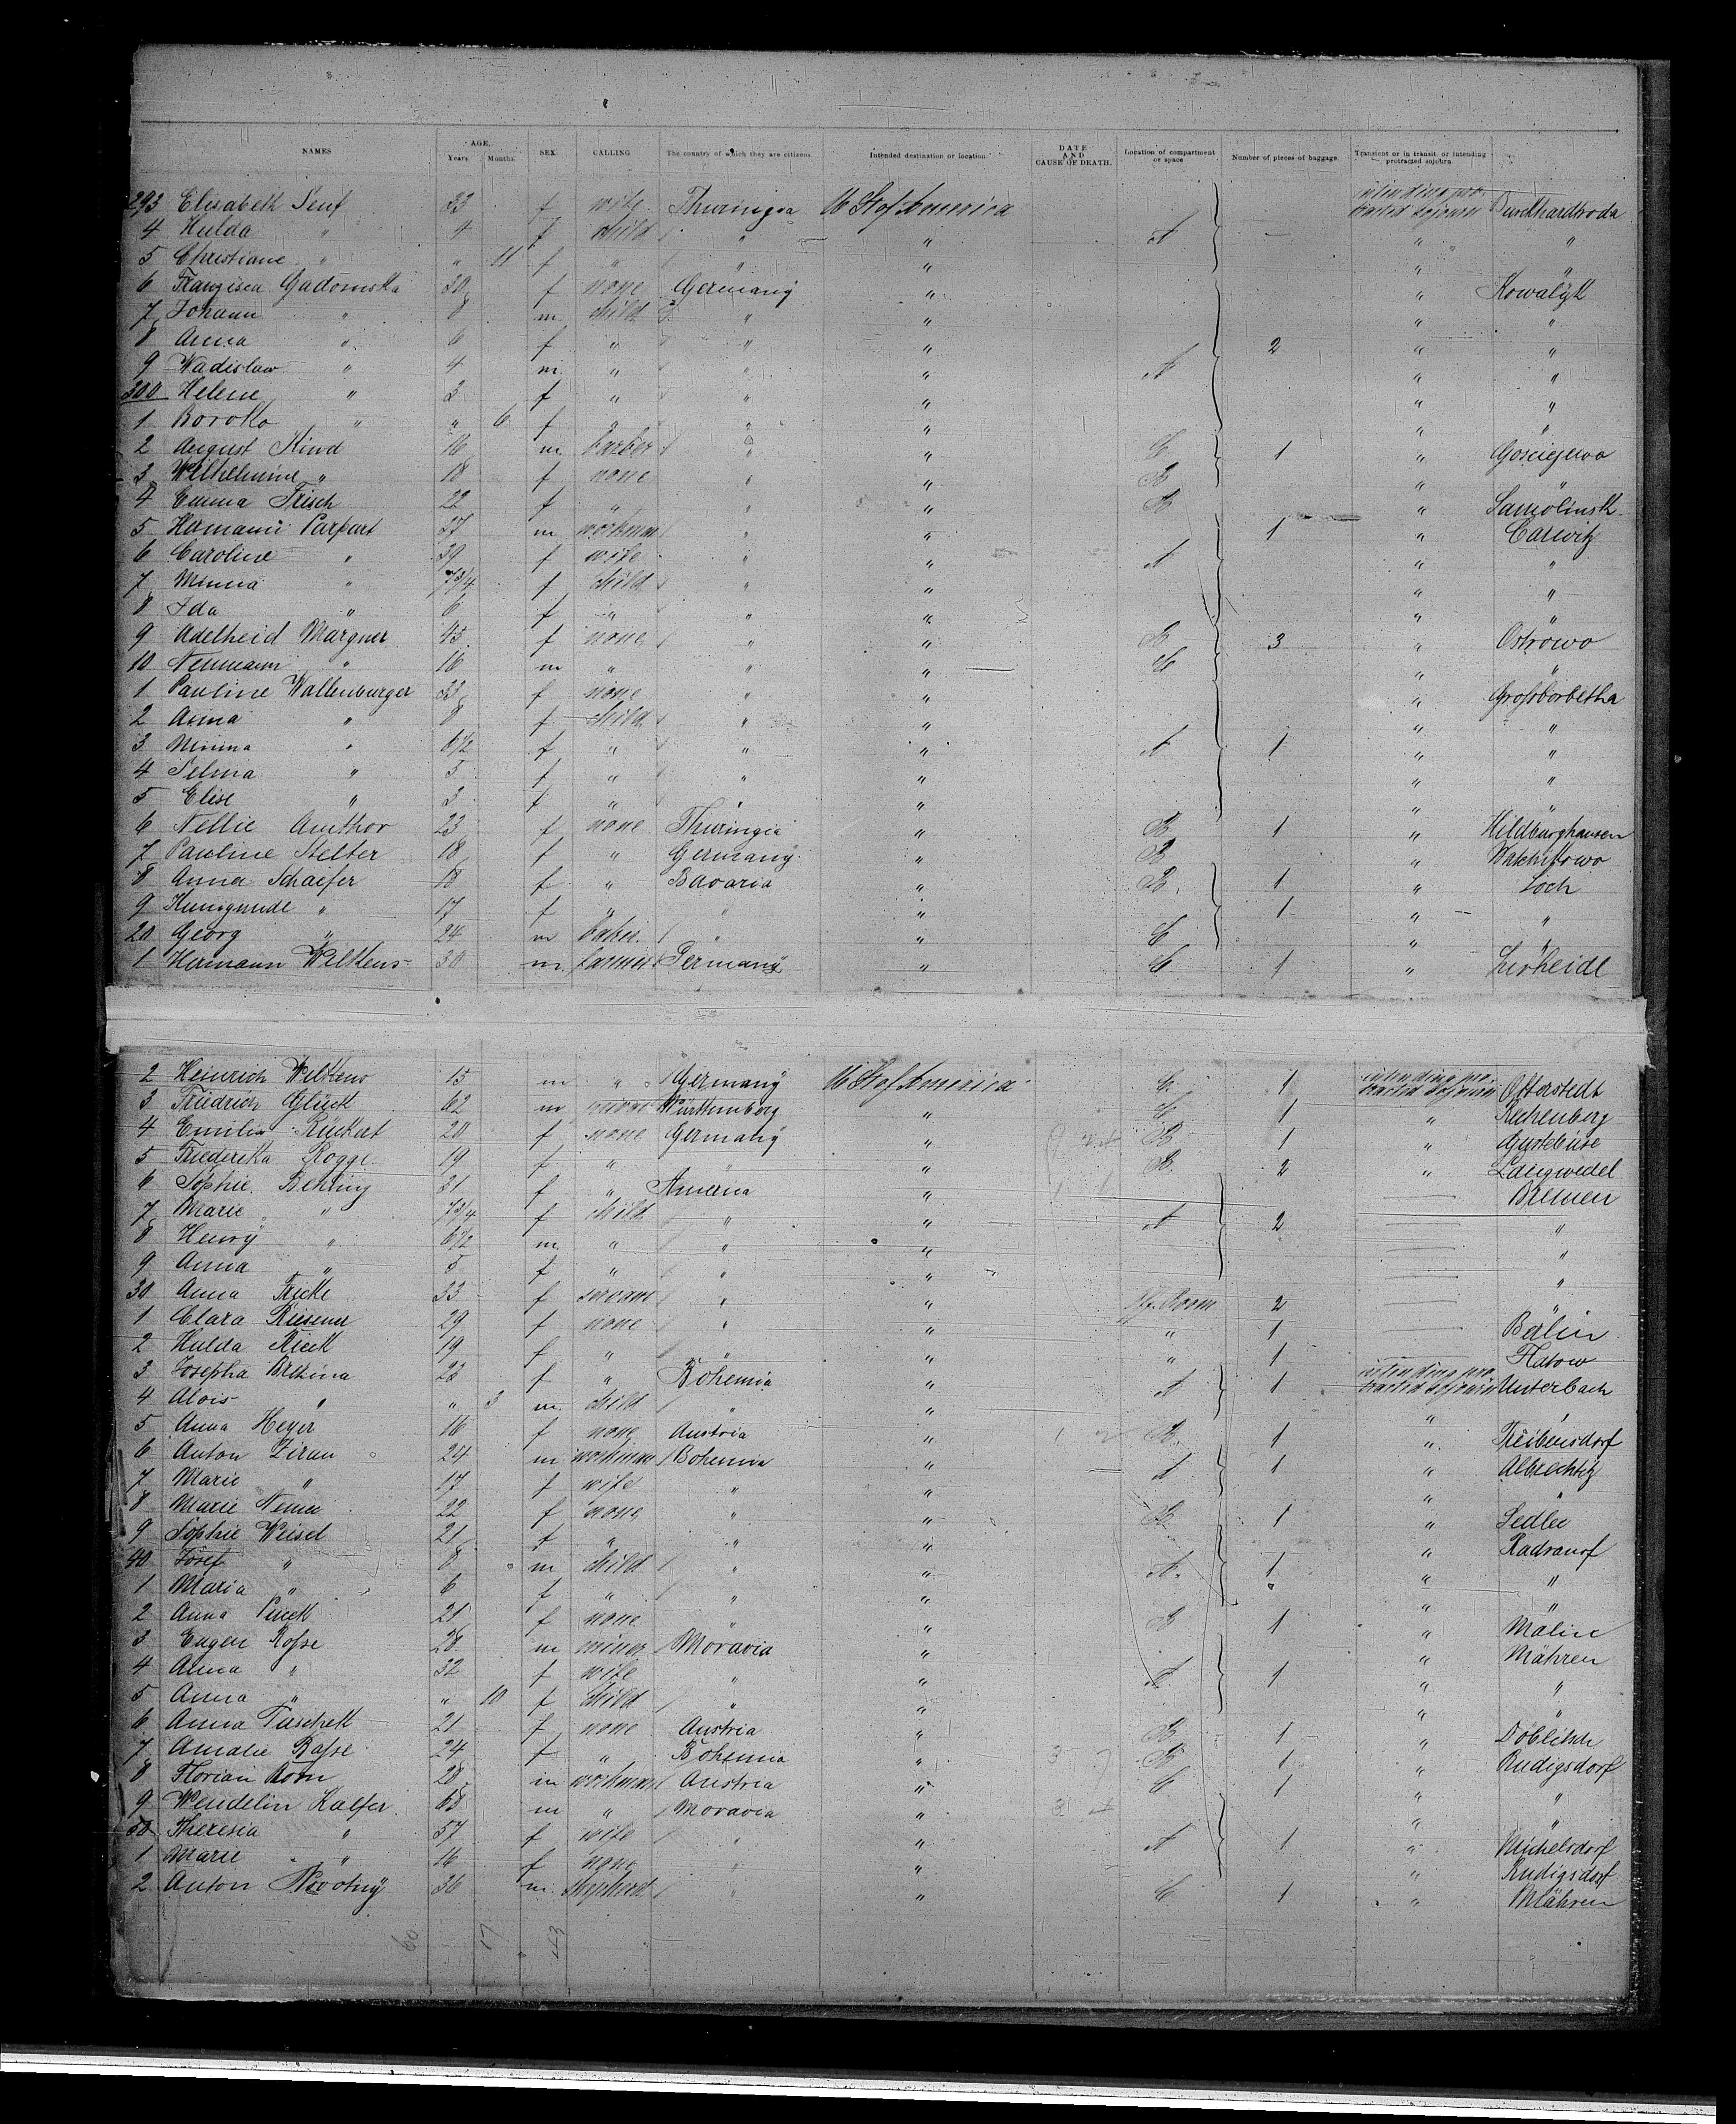 NAMES AGE. Years Months SEX CALLING The country of which they are citizens. Intended destination or location. DATE AND CAUSE OF DEATH. Location of compartment or space Number of pieces of baggage. Transient or in transit, or intending protracted sojourn.
293 Elisabeth Senf 33 f wife Thuringia U St of America intending protracted sojourn Burkhardtroda
4 Hulda " 4 f child " " A " "
5 Christiane " " 11 f " " " " "
6 Franzisca Gadomska 30 f none Germany " " Kowalyk
7 Johann " 8 m child " " " "
8 Anna " 6 f " " " 2 " "
9 Wadislaw " 4 m " " " A " "
300 Helene " 3 f " " " " "
1 " " 6 f " " " " "
2 August Kind 16 m barber " " C 1 " Gosciejewo
3 Wilhelmine " 18 f none " " B "
4 Emma Frisch 22 f " " " B " Samolinsk
5 Hermann Parpart 37 m workman " " 1 " Carwitz
6 Caroline " 39 f wife " " A " "
7 Minna " 7 3/4 f child " " " "
8 Ida " 6 f " " " " "
9 Adelheid Margner 45 f none " " B 3 " Ostrowo
10 " 16 m " " " C " "
1 Pauline Wallenburger 33 f none " " " Grossborbetha
2 Anna " 8 f child " " " "
3 Minna " 6 1/2 f " " " A 1 " "
4 Selma " 5 f " " " " "
5 Elise " 3 f " " " " "
6 Nellie Amthor 23 f none Thuringia " B 1 " Hildburghausen
7 Pauline Stelter 18 f " Germany " B "
8 Anna Schaefer 18 f " Bavaria " B 1 " Loch
9 Kunigunde " 17 f " " " 1 " "
20 Georg " 24 m baker " " C " "
1 Hermann Wilkens 30 m farmer Germany " C 1 "
2 Heinrich Wilkens 15 m " Germany U St of America C 1 intending protracted sojourn Otterstedt
3 Friedrich Glück 62 m Württemberg " C 1 " Rechenberg
4 Emilie Rückert 20 f none Germany " B 1 "
5 Friederika Rogge 19 f " " " B 2 " Langwedel
6 Sophie Behring 31 f " America " Bremen
7 Marie " 7 3/4 f child " " A 2 "
8 Henry " 6 1/2 m " " " "
9 Anna " 5 f " " " "
30 Anna Fricke 33 f servant " " Room 2
1 Clara 29 f none " " " 1 Berlin
2 Hulda Rieck 19 f " " " " 1 Flatow
3 Josepha 23 f " Bohemia " A 1 intending protracted sojourn Unterbach
4 Alois " " 3 m child " " " "
5 Anna Heger 16 f none Austria " B 1 "
6 Anton Ziran 24 m workman Bohemia " A 1 " Albrechtitz
7 Marie " 17 f wife " " " "
8 Marie 22 f none " " B 1 " Sedlec
9 Sophie Weisel 21 f " " " "
40 Josef " 8 m child " " A 1 " "
1 Maria " 6 f " " " " "
2 Anna 21 f none " " B 1 " Malin
3 Eugen Rosse 28 m miner Moravia " " Mähren
4 Anna " 32 f wife " " A 1 " "
5 Anna " " 10 f child " " " "
6 Anna Taschek 21 f none Austria " B 1 "
7 Amalie 24 f " Bohemia " B 1 " Rudigsdorf
8 Florian 28 m workman Austria " C 1 " "
9 Wendelin Kalfer 65 m " Moravia " " "
50 Theresia " 57 f wife " " A 1 " Michelsdorf
1 Marie " 16 f none " " " Rudigsdorf
2 Anton Novotny 36 m shepherd " " C 1 " Mähren
60 17 43